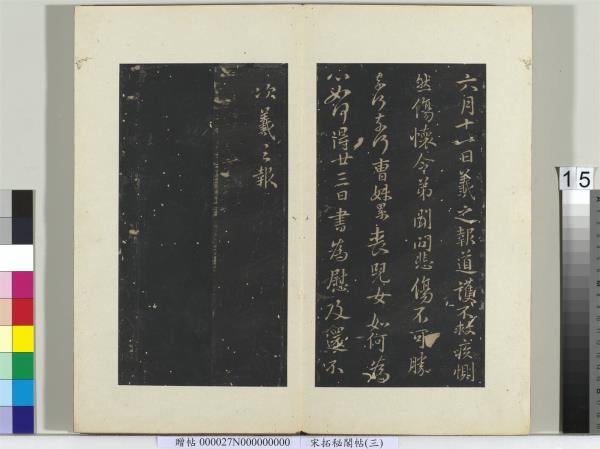 六月十六日羲之報道護不救疾惻
然傷懷令弟聞問悲傷不可勝
奈何奈何曹妹累喪兒女如何為
心如何得廿三日書為慰及還不
次羲之報
15
贈帖 000027N000000000 宋拓秘閣帖(三)